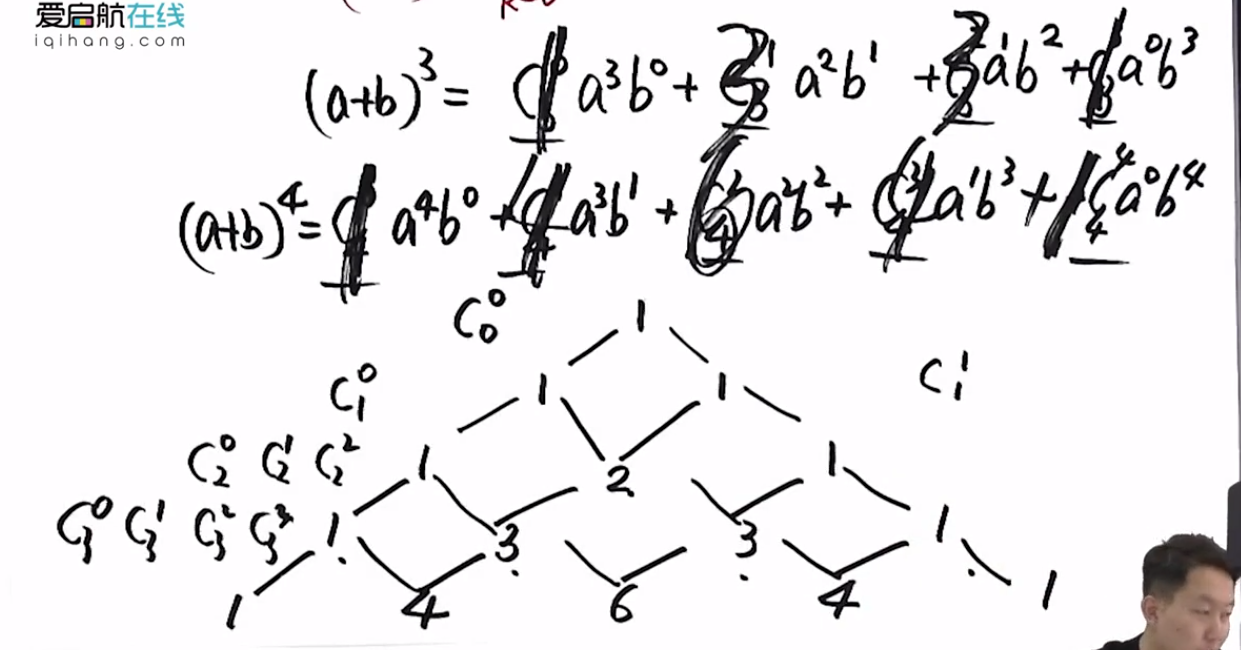 爱启航在线
iqihang.com
(a+b)³ = C₃⁰ a³b⁰ + C₃¹ a²b¹ + C₃² a¹b² + C₃³ a⁰b³
(a+b)⁴ = C₄⁰ a⁴b⁰ + C₄¹ a³b¹ + C₄² a²b² + C₄³ a¹b³ + C₄⁴ a⁰b⁴
C₀⁰ 1
C₁⁰ 1 1 C₁¹
C₂⁰ C₂¹ C₂² 1 2 1
C₃⁰ C₃¹ C₃² C₃³ 1 3 3 1
1 4 6 4 1